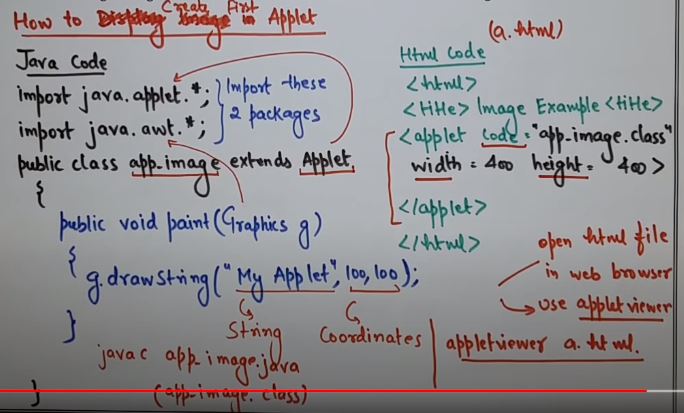 How to Create First Applet
Java Code
import java.applet.*;
import java.awt.*;
Import these
2 packages
public class app_image extends Applet
{
public void paint(Graphics g)
{
g.drawString("My Applet", 100,100);
String
Coordinates
}
javac app_image.java
(app_image.class)
}
(a.html)
Html Code
<html>
<title> Image Example <title>
<applet code="app_image.class"
width = 400 height = 400>
</applet>
</html>
open html file
in web browser
use appletviewer
appletviewer a.html.